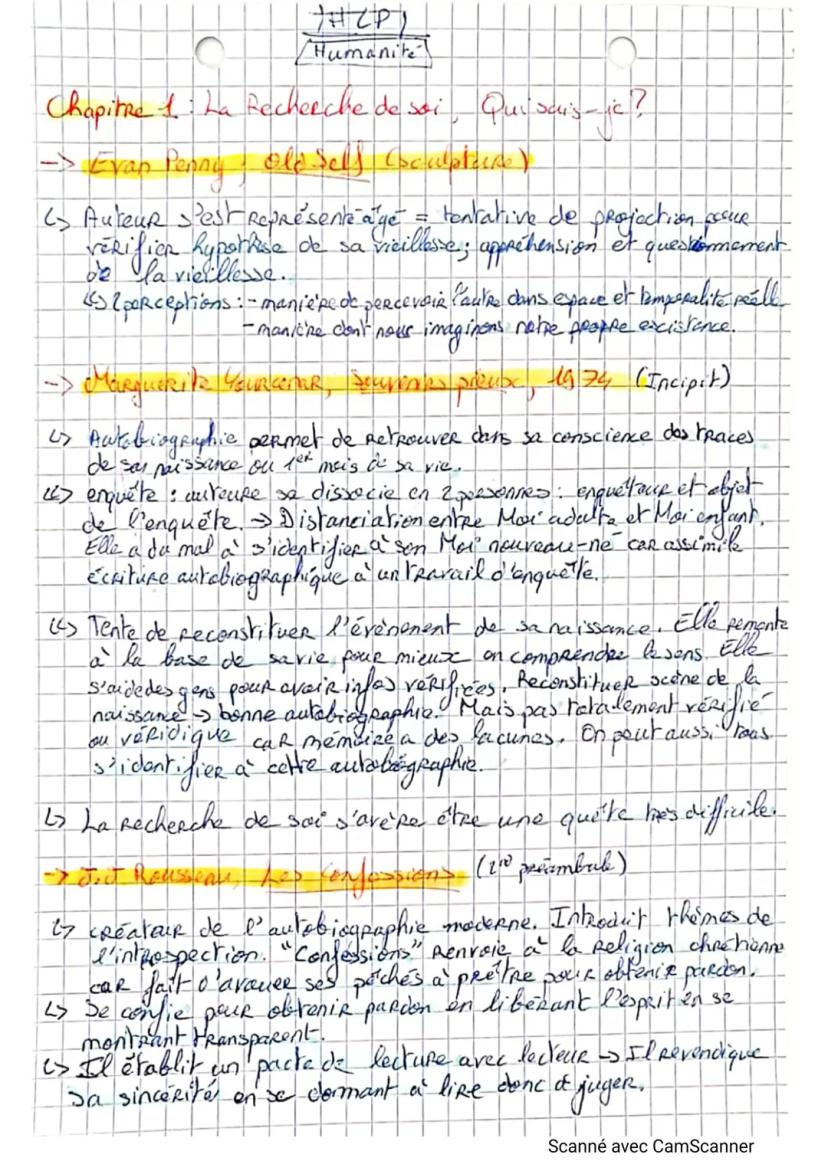 HLP
Humanité
Chapitre 1 : La Recherche de soi, Qui suis-je ?
-> Evan Penny, Old Self (sculpture)
↳ Auteur s'est représenté âgé = tentative de projection pour
vérifier hypothèse de sa vieillesse ; appréhension et questionnement
de la vieillesse.
↳ 2 perceptions : - manière de percevoir l'autre dans espace et temporalité réelle
- manière dont nous imaginons notre propre existence.
-> Marguerite Yourcenar, Souvenirs pieux, 1974 (Incipit)
↳ Autobiographie permet de retrouver dans sa conscience des traces
de sa naissance ou 1er mois de sa vie.
↳ enquête : auteure se dissocie en 2 personnes : enquêteur et objet
de l'enquête. → Distanciation entre Moi adulte et Moi enfant.
Elle a du mal à s'identifier à son Moi nouveau-né car assimile
écriture autobiographique à un travail d'enquête.
↳ Tente de reconstituer l'évènement de sa naissance. Elle remonte
à la base de sa vie pour mieux en comprendre le sens. Elle
s'aide des gens pour avoir infos vérifiées. Reconstituer scène de la
naissance → bonne autobiographie. Mais pas totalement vérifié
ou véridique car mémoire a des lacunes. On peut aussi tous
s'identifier à cette autobiographie.
↳ La recherche de soi s'avère être une quête très difficile.
-> J.J Rousseau, Les Confessions (1er préambule)
↳ créateur de l'autobiographie moderne. Introduit thèmes de
l'introspection. "Confessions" renvoie à la religion chrétienne
car fait d'avouer ses péchés à prêtre pour obtenir pardon.
↳ Se confie pour obtenir pardon en libérant l'esprit en se
montrant transparent.
↳ Il établit un pacte de lecture avec lecteur → Il revendique
sa sincérité en se donnant à lire donc à juger.
Scanné avec CamScanner